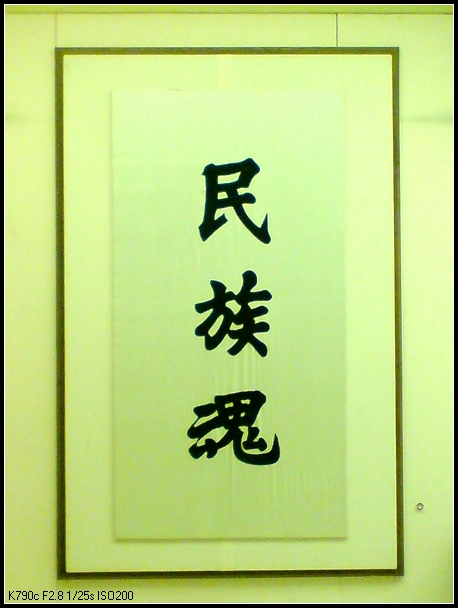 民族魂
K790c F2.8 1/25s ISO200